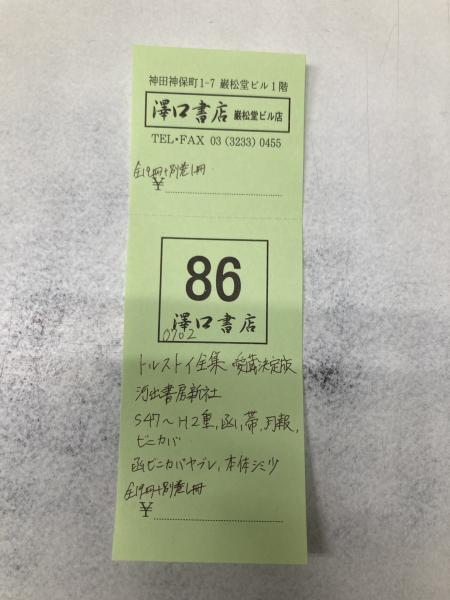 神田神保町1-7 巌松堂ビル1階
澤口書店 巌松堂ビル店
TEL・FAX 03 (3233) 0455
全19冊+別巻1冊
¥
86
澤口書店
0702
トルストイ全集 愛蔵決定版
河出書房新社
S47〜H2重, 函, 帯, 月報,
ビニカバ
函ビニカバヤブレ, 本体シミ少
全19冊+別巻1冊
¥